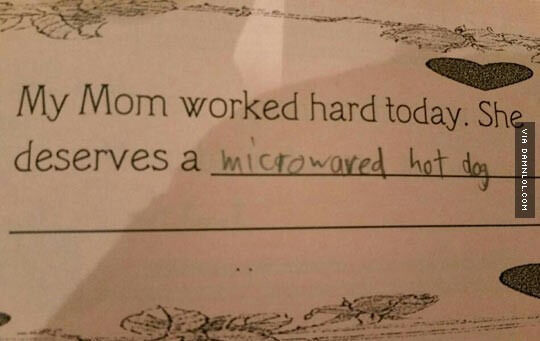 My Mom worked hard today. She
deserves a microwaved hot dog
VIA DAMNLOL.COM